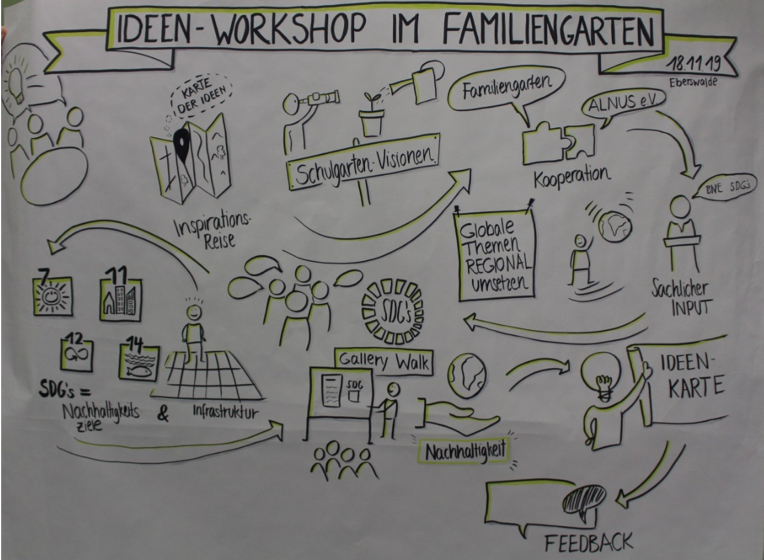 IDEEN-WORKSHOP IM FAMILIENGARTEN
18.11.19
Eberswalde
KARTE
DER IDEEN
Inspirations-
Reise
Schulgarten-Visionen
Familiengarten
ALNUS eV
Kooperation
BNE SDG's
Sachlicher
INPUT
Globale
Themen
REGIONAL
umsetzen
SDG's
7
11
12
14
SDG's =
Nachhaltigkeits
ziele
&
Infrastruktur
Gallery Walk
SDG
Nachhaltigkeit
IDEEN-
KARTE
FEEDBACK